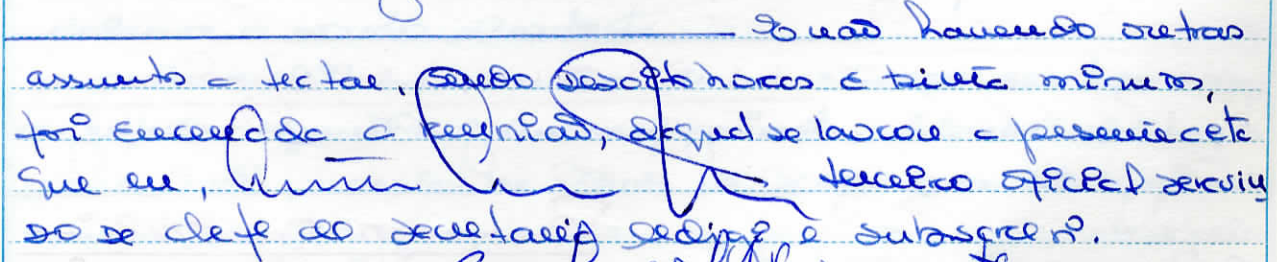 E não havendo outros
assunto a tratar, sendo dezoito horas e trinta minutos,
foi encerrada a reunião, da qual se lavrou a presente acta
que eu, terceiro oficial servin
do de chefe de secretaria redigi e subscrevi.